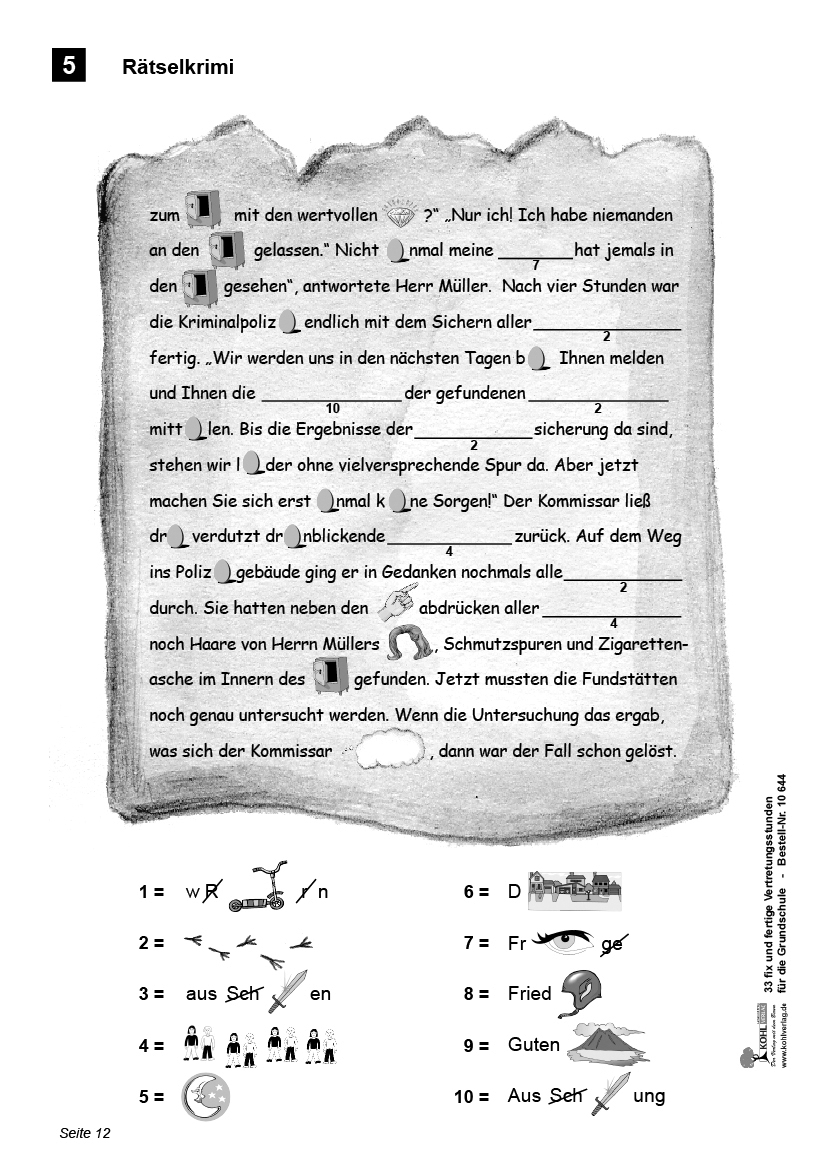 5 Rätselkrimi
zum mit den wertvollen ?“ „Nur ich! Ich habe niemanden
an den gelassen.“ Nicht nmal meine ________ hat jemals in
7
den gesehen“, antwortete Herr Müller. Nach vier Stunden war
die Kriminalpoliz endlich mit dem Sichern aller ________
2
fertig. „Wir werden uns in den nächsten Tagen b Ihnen melden
und Ihnen die ________ der gefundenen ________
10 2
mitt len. Bis die Ergebnisse der ________ sicherung da sind,
2
stehen wir l der ohne vielversprechende Spur da. Aber jetzt
machen Sie sich erst nmal k ne Sorgen!“ Der Kommissar ließ
dr verdutzt dr nblickende ________ zurück. Auf dem Weg
4
ins Poliz gebäude ging er in Gedanken nochmals alle ________
2
durch. Sie hatten neben den abdrücken aller ________
4
noch Haare von Herrn Müllers , Schmutzspuren und Zigaretten-
asche im Innern des gefunden. Jetzt mussten die Fundstätten
noch genau untersucht werden. Wenn die Untersuchung das ergab,
was sich der Kommissar , dann war der Fall schon gelöst.
1 = w R r n
2 =
3 = aus Sch en
4 =
5 =
6 = D
7 = Fr ge
8 = Fried
9 = Guten
10 = Aus Sch ung
Seite 12
33 fix und fertige Vertretungsstunden
für die Grundschule - Bestell-Nr. 10 644
KOHL VERLAG
Der Verlag mit dem Baum
www.kohlverlag.de